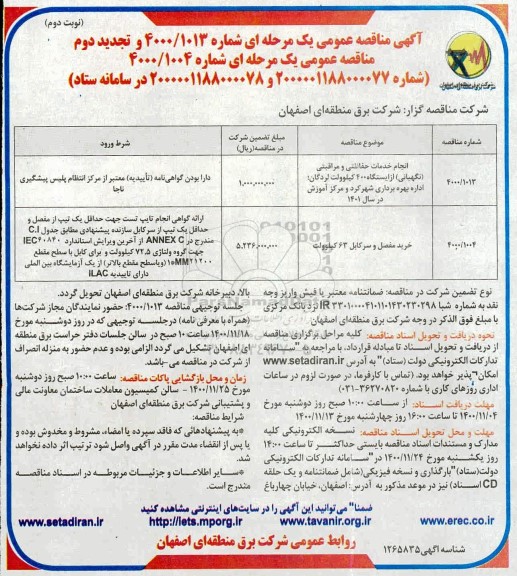 (نوبت دوم)
آگهی مناقصه عمومی یک مرحله ای شماره ۴۰۰۰/۱۰۱۳ و تجدید دوم
مناقصه عمومی یک مرحله ای شماره ۴۰۰۰/۱۰۰۴
(شماره ۲۰۰۰۰۰۱۱۸۸۰۰۰۰۷۷ و ۲۰۰۰۰۰۱۱۸۸۰۰۰۰۷۸ در سامانه ستاد)
شرکت مناقصه گزار: شرکت برق منطقه‌ای اصفهان
شماره مناقصه
موضوع مناقصه
مبلغ تضمین شرکت در مناقصه(ریال)
شرط ورود
۴۰۰۰/۱۰۱۳
انجام خدمات حفاظتی و مراقبتی
(نگهبانی) ازایستگاه ۴۰۰ کیلوولت لردگان؛
اداره بهره برداری شهرکرد و مرکز آموزش
در سال ۱۴۰۱
۱,۰۰۰,۰۰۰,۰۰۰
دارا بودن گواهی‌نامه (تأییدیه) معتبر از مرکز انتظام پلیس پیشگیری
ناجا
۴۰۰۰/۱۰۰۴
خرید مفصل و سرکابل ۶۳ کیلوولت
۵,۲۳۶,۰۰۰,۰۰۰
ارائه گواهی انجام تایپ تست جهت حداقل یک تیپ از مفصل و
حداقل یک تیپ از سرکابل سازنده پیشنهادی مطابق جدول C.I
مندرج در ANNEX C از آخرین ویرایش استاندارد IEC۶۰۸۴۰
جهت گروه ولتاژی ۷۲٫۵ کیلوولت و برای کابل با سطح مقطع
۱*۱۲۰۰MM۲ (ویاسطح مقطع بالاتر) از یک آزمایشگاه بین المللی
دارای تاییدیه iLAC
نوع تضمین شرکت در مناقصه: ضمانتنامه معتبر یا فیش واریز وجه
نقد به شماره شبا IR ۳۳۰۱۰۰۰۰۴۱۰۱۱۰۱۴۳۰۲۳۰۲۹۸ نزد بانک مرکزی
با مبلغ فوق الذکر در وجه شرکت برق منطقه‌ای اصفهان
نحوه دریافت و تحویل اسناد مناقصه: کلیه مراحل برگزاری مناقصه
از دریافت و تحویل اسناد تا مبادله قرارداد، با مراجعه به "سامانه
تدارکات الکترونیکی دولت (ستاد)" به آدرس www.setadiran.ir
امکان پذیر خواهد بود. (تماس با کارفرما، در صورت لزوم در ساعات
اداری روزهای کاری با شماره ۳۶۲۷۰۸۲۰-۰۳۱)
مهلت دریافت اسناد: از ساعت ۱۰:۰۰ صبح روز دوشنبه مورخ
۱۴۰۰/۱۱/۰۴ تا ساعت ۱۶:۰۰ روز چهارشنبه مورخ ۱۴۰۰/۱۱/۱۳
مهلت و محل تحویل اسناد مناقصه: نسخه الکترونیکی کلیه
مدارک و مستندات اسناد مناقصه بایستی حداکثر تا ساعت ۱۴:۰۰
روز یکشنبه مورخ ۱۴۰۰/۱۱/۲۴ در"سامانه تدارکات الکترونیکی
دولت(ستاد)"بارگذاری و نسخه فیزیکی(شامل ضمانتنامه و یک حلقه
CD اسناد) نیز در موعد مذکور به آدرس: اصفهان، خیابان چهارباغ
بالا، دبیرخانه شرکت برق منطقه‌ای اصفهان تحویل گردد.
جلسه توجیهی مناقصه ۴۰۰۰/۱۰۱۳: حضور نمایندگان مجاز شرکت‌ها
(همراه با معرفی نامه) درجلسه توجیهی که در روز دوشنبه مورخ
۱۴۰۰/۱۱/۱۸ ساعت ۱۰ صبح در سالن جلسات دفتر حراست برق منطقه
ای اصفهان تشکیل می گردد الزامی بوده و عدم حضور به منزله انصراف
از شرکت در مناقصه می باشد.
زمان و محل بازگشایی پاکات مناقصه: ساعت ۱۰:۰۰ صبح روز دوشنبه
مورخ ۱۴۰۰/۱۱/۲۵ - سالن کمیسیون معاملات ساختمان معاونت مالی
و پشتیبانی شرکت برق منطقه‌ای اصفهان
شرایط مناقصه:
*به پیشنهادهائی که فاقد سپرده یا امضاء، مشروط و مخدوش بوده و
یا پس از انقضاء مدت مقرر در آگهی واصل شود ترتیب اثر داده نخواهد
شد.
*سایر اطلاعات و جزئیات مربوطه در اسناد مناقصه
مندرج است.
ضمنا" می‌توانید این آگهی را در سایت‌های اینترنتی مشاهده کنید
www.erec.co.ir
www.tavanir.org.ir
http://iets.mporg.ir
www.setadiran.ir
روابط عمومی شرکت برق منطقه‌ای اصفهان
شناسه آگهی ۱۲۶۵۸۳۵